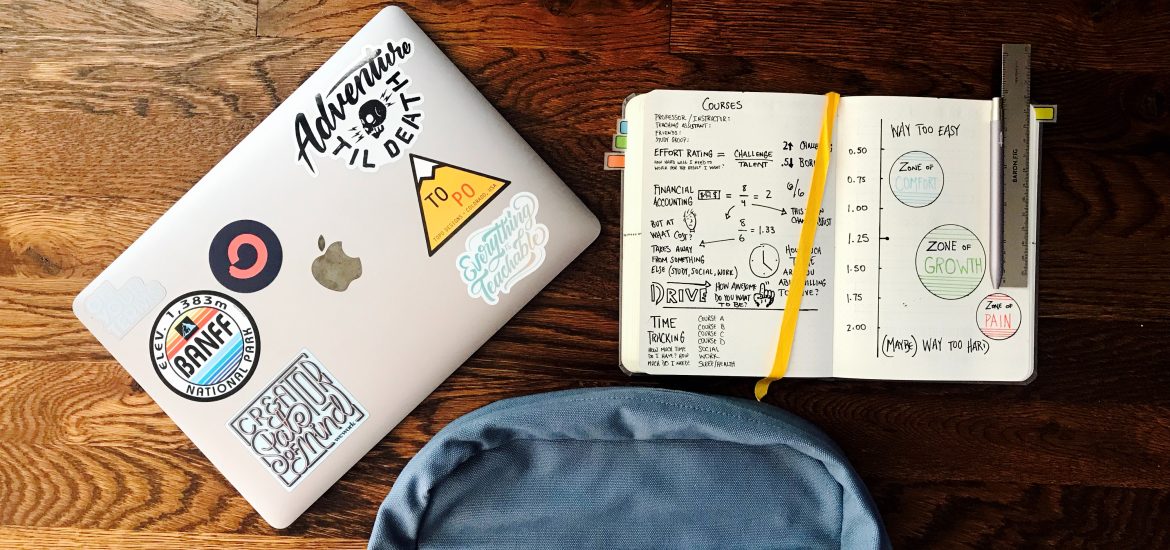 Adventure
'TIL DEATH
TO
PO
TOPO DESIGNS • COLORADO, USA
Everything
is
Teachable
ELEV. 1,383m
BANFF
NATIONAL PARK
CREATOR
State
of Mind
wework
COURSES
PROFESSOR / INSTRUCTOR:
TEACHING ASSISTANT:
FRIENDS:
STUDY GROUP:
EFFORT RATING = CHALLENGE
TALENT
2↑
.5↓
HOW HARD WILL I NEED TO
WORK FOR THE RESULT I WANT?
FINANCIAL
ACCOUNTING
= 8
4
= 2
6/6
BUT AT
WHAT COST?
8
6
= 1.33
THIS
TAKES AWAY
FROM SOMETHING
ELSE (STUDY, SOCIAL, WORK)
HOW MUCH
TIME
ARE YOU
DRIVE
HOW AWESOME
DO YOU WANT
TO BE?
TIME
TRACKING
HOW MUCH TIME
DO I HAVE? HOW
MUCH DO I NEED?
COURSE A
COURSE B
COURSE C
COURSE D
SOCIAL
WORK
SLEEP/HEALTH
WAY TOO EASY
0.50
0.75
1.00
1.25
1.50
1.75
2.00
ZONE OF
COMFORT
ZONE OF
GROWTH
ZONE OF
PAIN
(MAYBE) WAY TOO HARD
BARON FIG